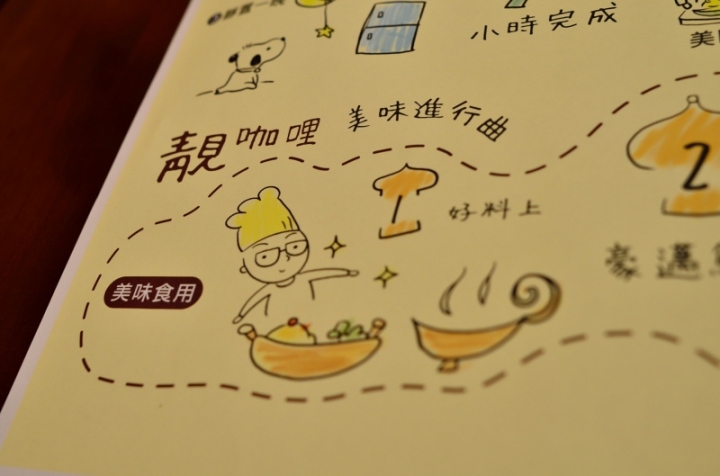 小時完成
靚咖哩 美味進行曲
1 好料上
2
豪邁
美味食用